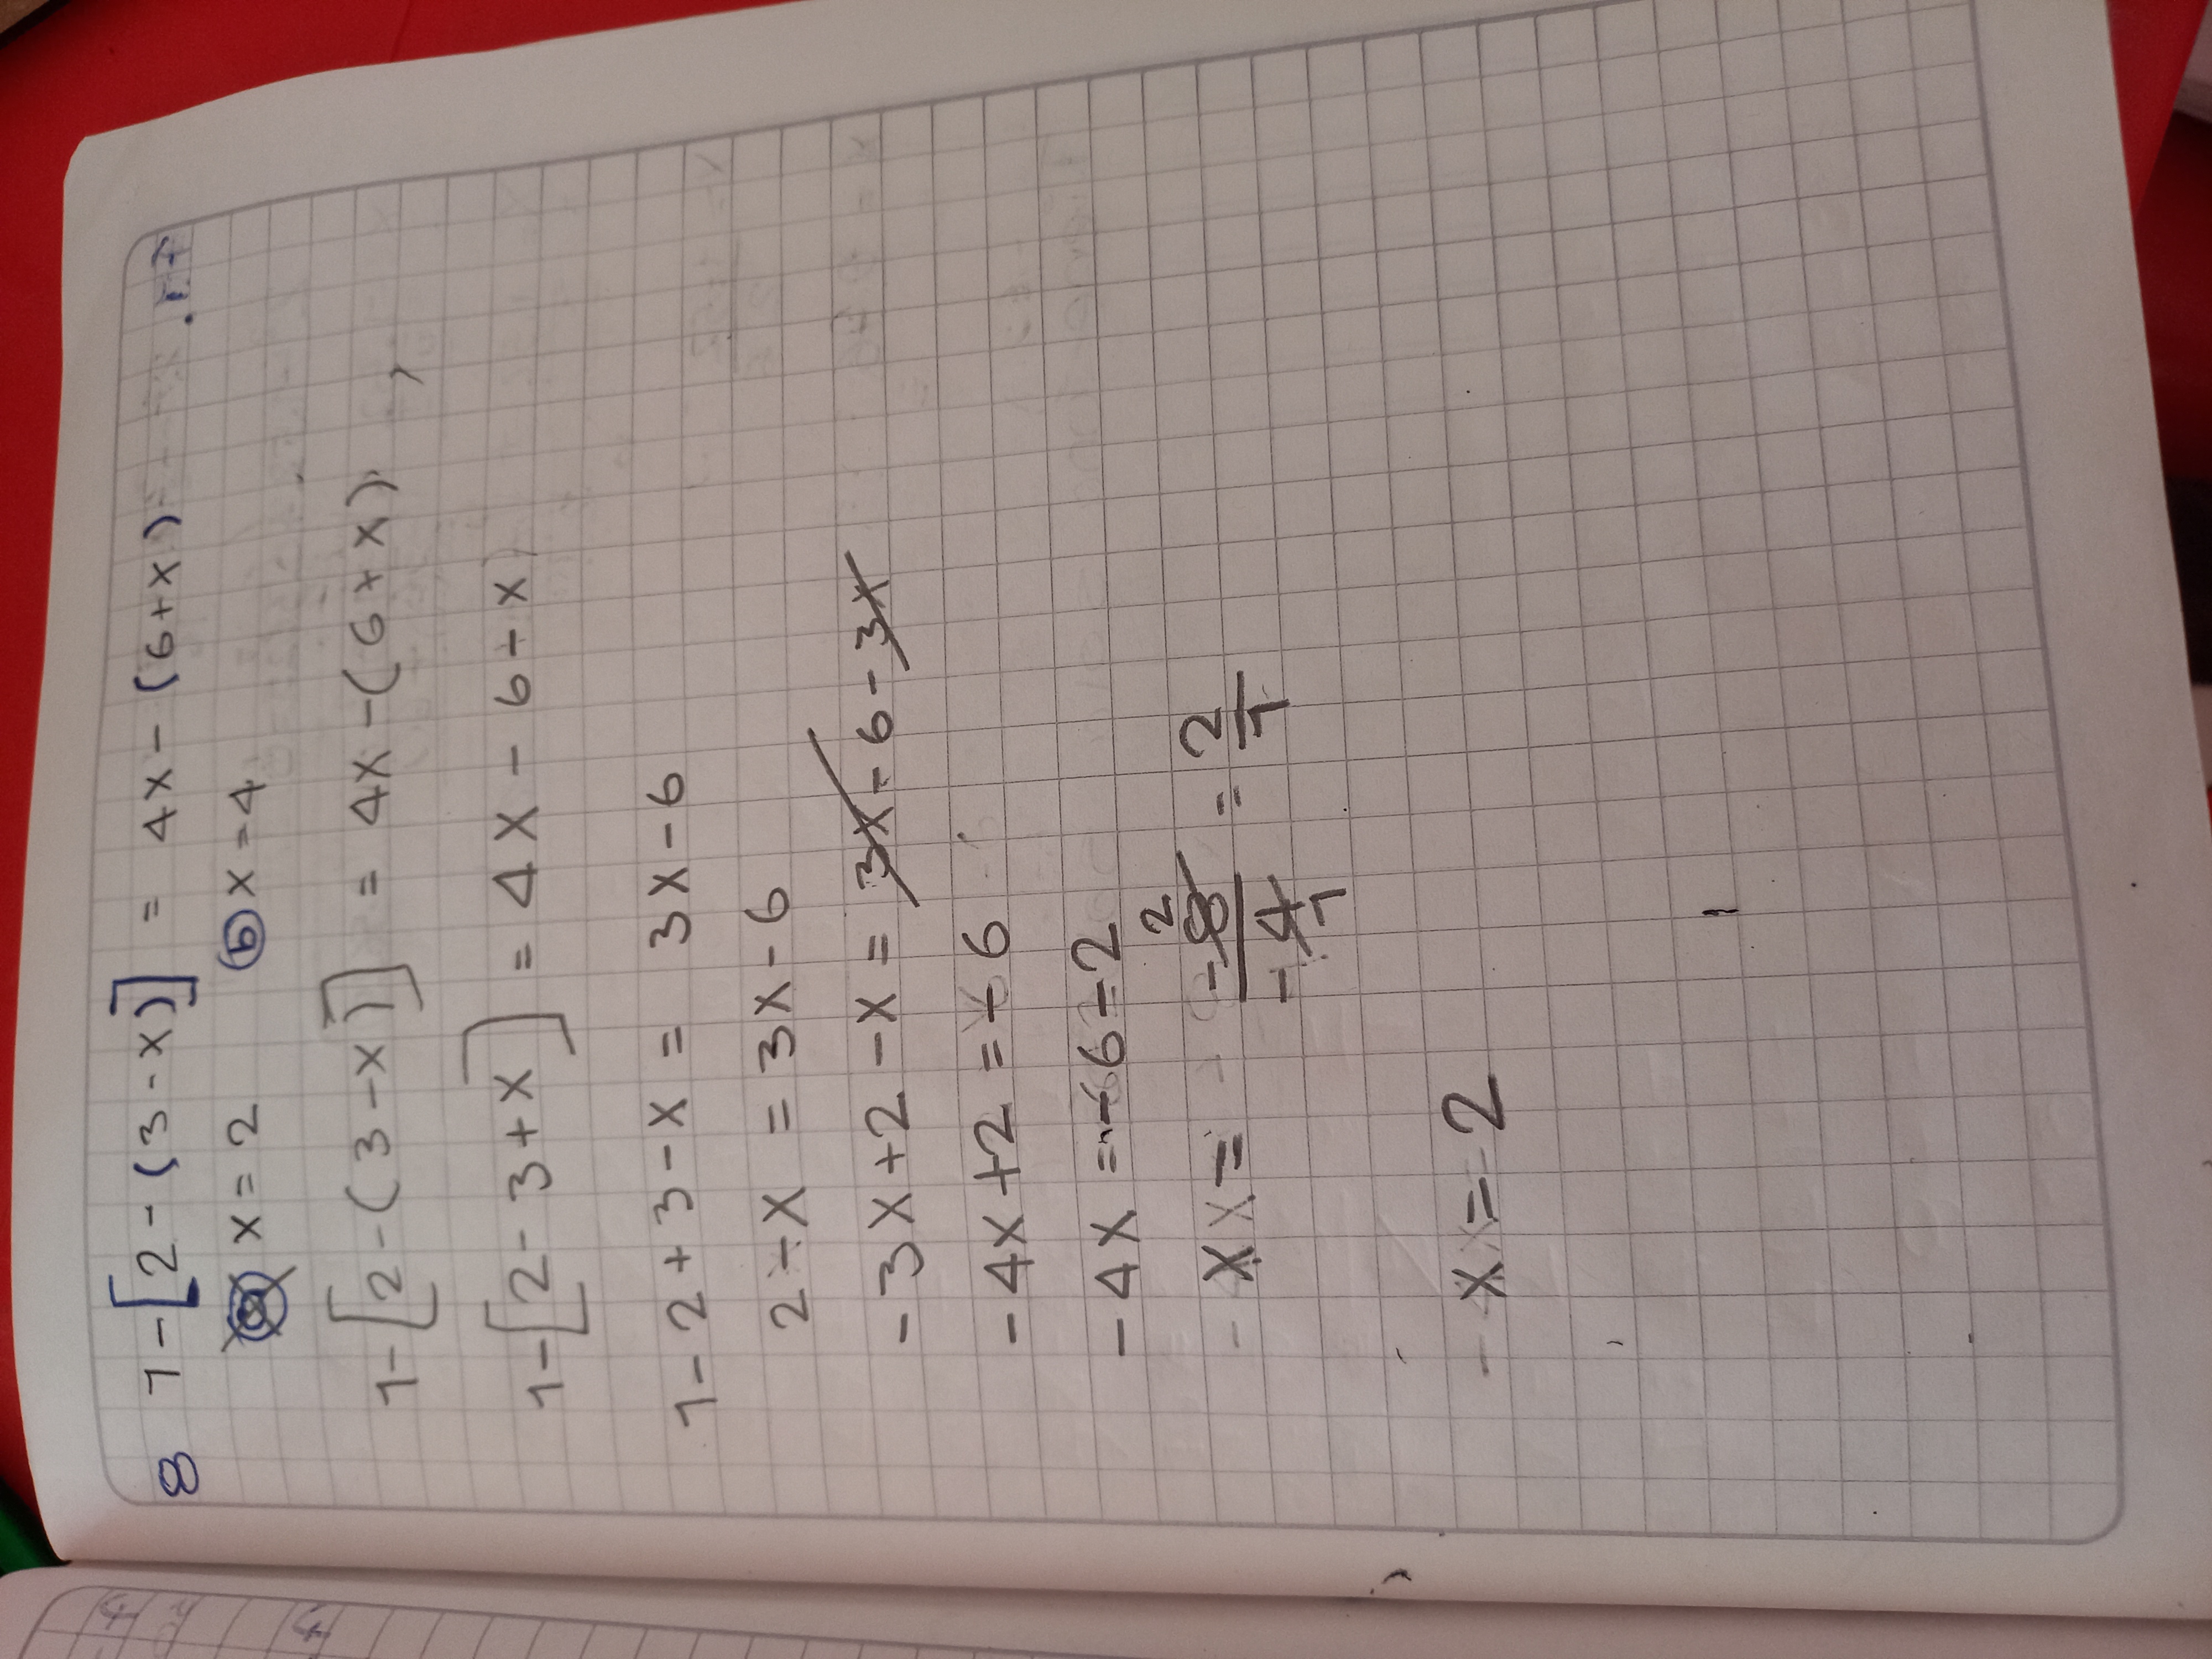 8 1-[2-(3-x)] = 4x-(6+x)
a x=2 b x=4
1-[2-(3-x)] = 4x-(6+x)
1-[2-3+x] = 4x-6-x
1-2+3-x = 3x-6
2-x = 3x-6
-3x+2-x = 3x-6-3x
-4x+2 = -6
-4x = -6-2
2
x = -8/-4 = 2/1
1
x = 2